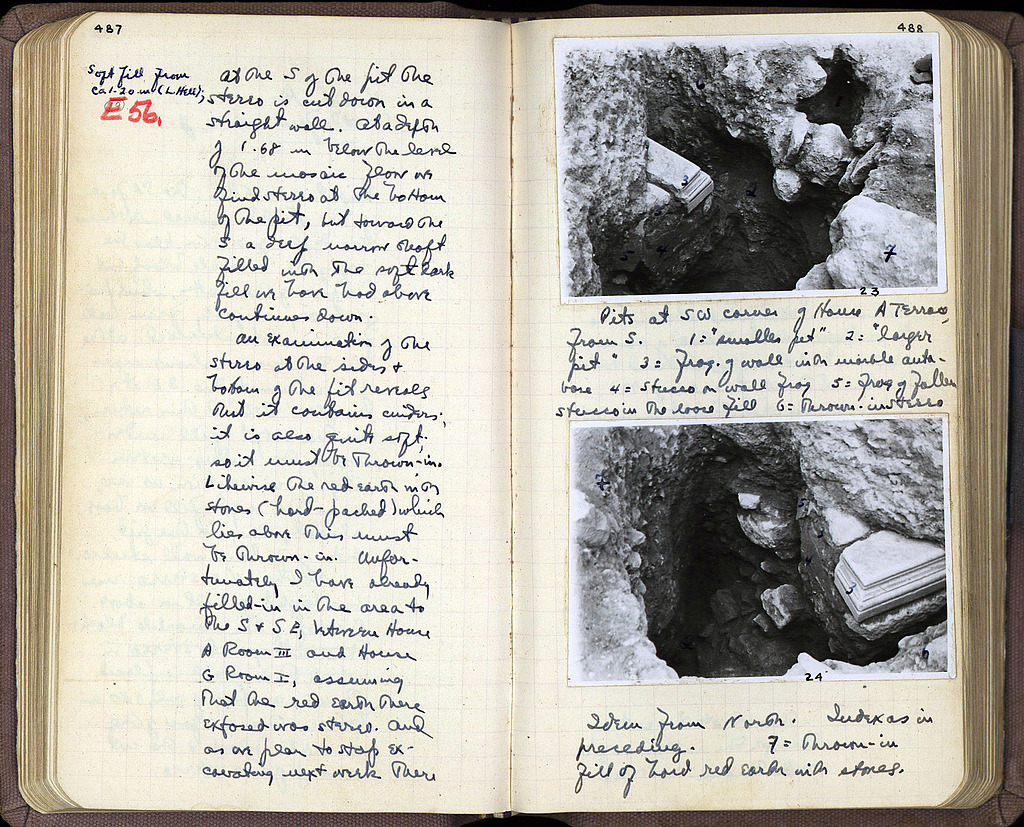 487
Soft fill from
ca 1.20 m (L. Hell);
E 56.
at the S of the pit the
stereo is cut down in a
straight wall. At a depth
of 1.68 m below the level
of the mosaic floor we
find stereo at the bottom
of the pit, but toward the
S a deep narrow shaft
filled with the soft dark
fill we have had above
continues down.
An examination of the
stereo at the sides +
bottom of the pit reveals
that it contains cinders;
it is also quite soft;
so it must be thrown-in.
Likewise the red earth with
stones (hard-packed) which
lies above this must
be thrown-in. Unfor-
tunately I have already
filled-in in the area to
the S + S E, between House
A Room III and House
G Room I, assuming
that the red earth there
exposed was stereo. And
as we plan to stop ex-
cavating next week there
488
1
6
3
2
5
4
7
23
Pits at SW corner of House A Terrace,
from S. 1 = "smaller pit" 2 = "larger
pit" 3 = frag. of wall with marble anta-
base 4 = stucco on wall frag 5 = frag of fallen
stucco in the loose fill 6 = Thrown-in stereo
7
5
3
4
3
2
6
24
Idem from North. Index as in
preceding. 7 = Thrown-in
fill of hard red earth with stones.